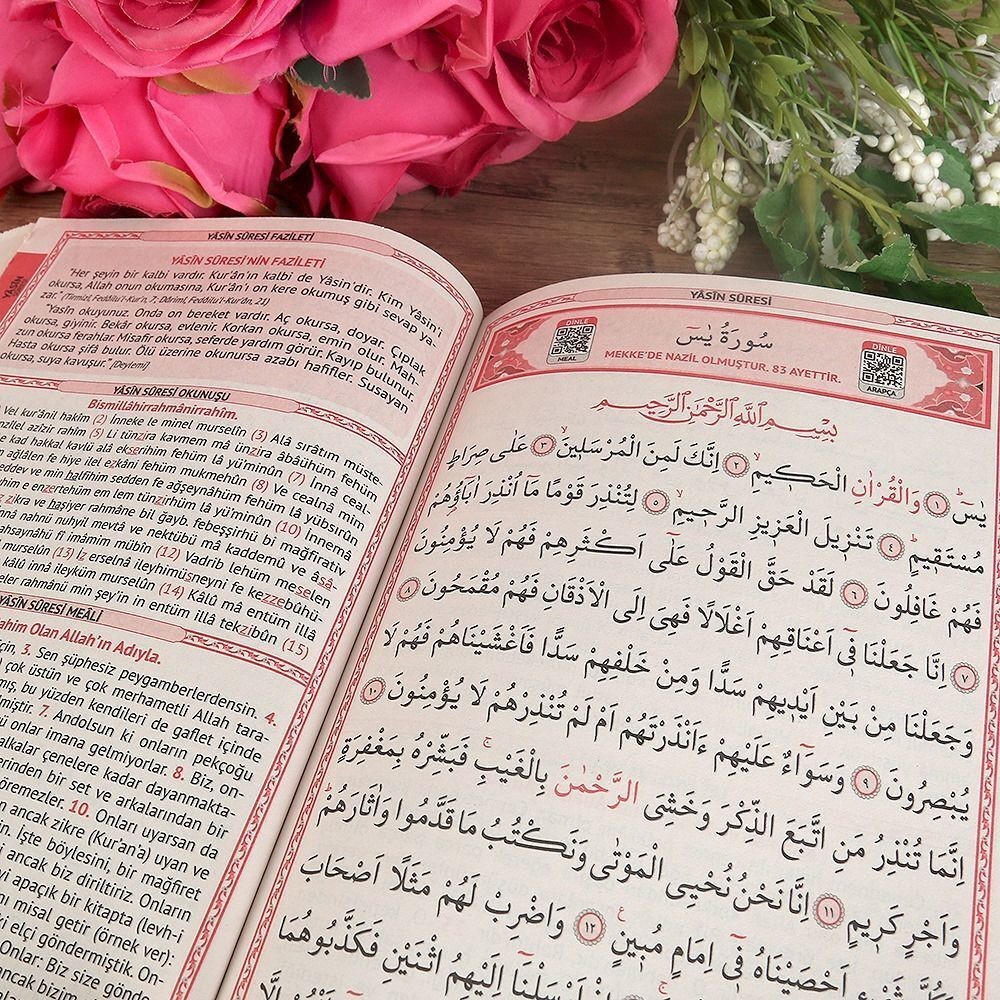 YÂSÎN SÛRESİ FAZİLETİ
YÂSÎN SÛRESİ'NİN FAZİLETİ
"Her şeyin bir kalbi vardır. Kur'ân'ın kalbi de Yâsin'dir. Kim Yâsin'i
okursa, Allah onun okumasına, Kur'ân'ı on kere okumuş gibi sevap ya-
zar." (Tirmizî, Fedâilu'l-Kur'n, 7; Dârimî, Fedâilu'l-Kur'ân, 21)
"Yasîn okuyunuz. Onda on bereket vardır. Aç okursa, doyar. Çıplak
okursa, giyinir. Bekâr okursa, evlenir. Korkan okursa, emin olur. Mah-
zun okursa ferahlar. Misafir okursa, seferde yardım görür. Kayıp bulunur.
Hasta okursa şifâ bulur. Ölü üzerine okunursa azabı hafifler. Susayan
okursa, suya kavuşur." [Deylemî]
YÂSÎN SÛRESİ OKUNUŞU
Bismillâhirrahmânirrahîm.
Vel kur'ânil hakîm (2) İnneke le minel murselîn (3) Alâ sırâtım müste-
azîzir rahîm (5) Li tünzira kavmem mâ ünzira âbâühüm fehüm
kad hakkal kavlü alâ ekserihim fehüm lâ yü'minûn (7) İnnâ ceal-
ağlâlen fe hiye ilel ezkâni fehüm mukmehûn (8) Ve cealnâ mim
ve min halfihim sedden fe ağşeynâhüm fehüm lâ yübsırûn
e enzertehüm em lem tünzirhüm lâ yü'minûn (10) İnnemâ
zikra ve haşiyer rahmâne bil ğayb, febeşşirhü bi mağfirativ
innâ nahnü nuhyil mevtâ ve nektübü mâ kaddemû ve âsâ-
ahsaynâhü fî imâmim mübîn (12) Vadrib lehüm meselen
murselûn (13) İz erselnâ ileyhimüsneyni fe kezzebûhü-
kâlû innâ ileyküm murselûn (14) Kâlû mâ entüm illâ
rahmânü min şey'in in entüm illâ tekzibûn (15)
YÂSÎN SÛRESİ MEÂLİ
Rahim Olan Allah'ın Adıyla.
için, 3. Sen şüphesiz peygamberlerdensin. 4.
çok üstün ve çok merhametli Allah tara-
bu yüzden kendileri de gaflet içinde
7. Andolsun ki onların pekçoğu
onlar imana gelmiyorlar. 8. Biz, on-
halkalar çenelere kadar dayanmakta-
bir set ve arkalarından bir
göremezler. 10. Onları uyarsan da
ancak zikre (Kur'an'a) uyan ve
İşte böylesini, bir mağfiret
ancak biz diriltiriz. Onların
apaçık bir kitapta (levh-i
misal getir (örnek ver):
elçi göndermiştik. On-
Onlar: Biz size gönde-
ancak bizim
YÂSÎN SÛRESİ
DİNLE
MEAL
سورة يس
MEKKE'DE NAZİL OLMUŞTUR. 83 AYETTİR.
DİNLE
ARAPÇA
بِسْمِ اللّٰهِ الرَّحْمٰنِ الرَّحِيمِ
يسٓ ﴿١﴾ وَالْقُرْاٰنِ الْحَكِيمِ ﴿٢﴾ اِنَّكَ لَمِنَ الْمُرْسَلِينَ ﴿٣﴾ عَلٰى صِرَاطٍ
مُسْتَقِيمٍ ﴿٤﴾ تَنْزِيلَ الْعَزِيزِ الرَّحِيمِ ﴿٥﴾ لِتُنْذِرَ قَوْمًا مَٓا اُنْذِرَ اٰبَٓاؤُهُمْ
فَهُمْ غَافِلُونَ ﴿٦﴾ لَقَدْ حَقَّ الْقَوْلُ عَلٰٓى اَكْثَرِهِمْ فَهُمْ لَا يُؤْمِنُونَ
﴿٧﴾ اِنَّا جَعَلْنَا فِٓى اَعْنَاقِهِمْ اَغْلَالًا فَهِىَ اِلَى الْاَذْقَانِ فَهُمْ مُقْمَحُونَ ﴿٨﴾
وَجَعَلْنَا مِنْ بَيْنِ اَيْدِيهِمْ سَدًّا وَمِنْ خَلْفِهِمْ سَدًّا فَاَغْشَيْنَاهُمْ فَهُمْ لَا
يُبْصِرُونَ ﴿٩﴾ وَسَوَٓاءٌ عَلَيْهِمْ ءَاَنْذَرْتَهُمْ اَمْ لَمْ تُنْذِرْهُمْ لَا يُؤْمِنُونَ ﴿١٠﴾
اِنَّمَا تُنْذِرُ مَنِ اتَّبَعَ الذِّكْرَ وَخَشِىَ الرَّحْمٰنَ بِالْغَيْبِ فَبَشِّرْهُ بِمَغْفِرَةٍ
وَاَجْرٍ كَرِيمٍ ﴿١١﴾ اِنَّا نَحْنُ نُحْيِى الْمَوْتٰى وَنَكْتُبُ مَا قَدَّمُوا وَاٰثَارَهُمْ
اَحْصَيْنَاهُ فِٓى اِمَامٍ مُبِينٍ ﴿١٢﴾ وَاضْرِبْ لَهُمْ مَثَلًا اَصْحَابَ
اِلَيْهِمُ اثْنَيْنِ فَكَذَّبُوهُمَا